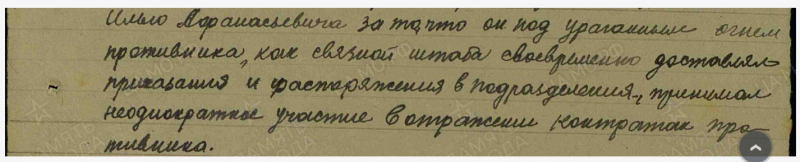 Илью Афанасьевича за то, что он под ураганным огнем
противника, как связной штаба своевременно доставлял
приказания и распоряжения в подразделения, принимал
неоднократное участие в отражении контратак про-
тивника.